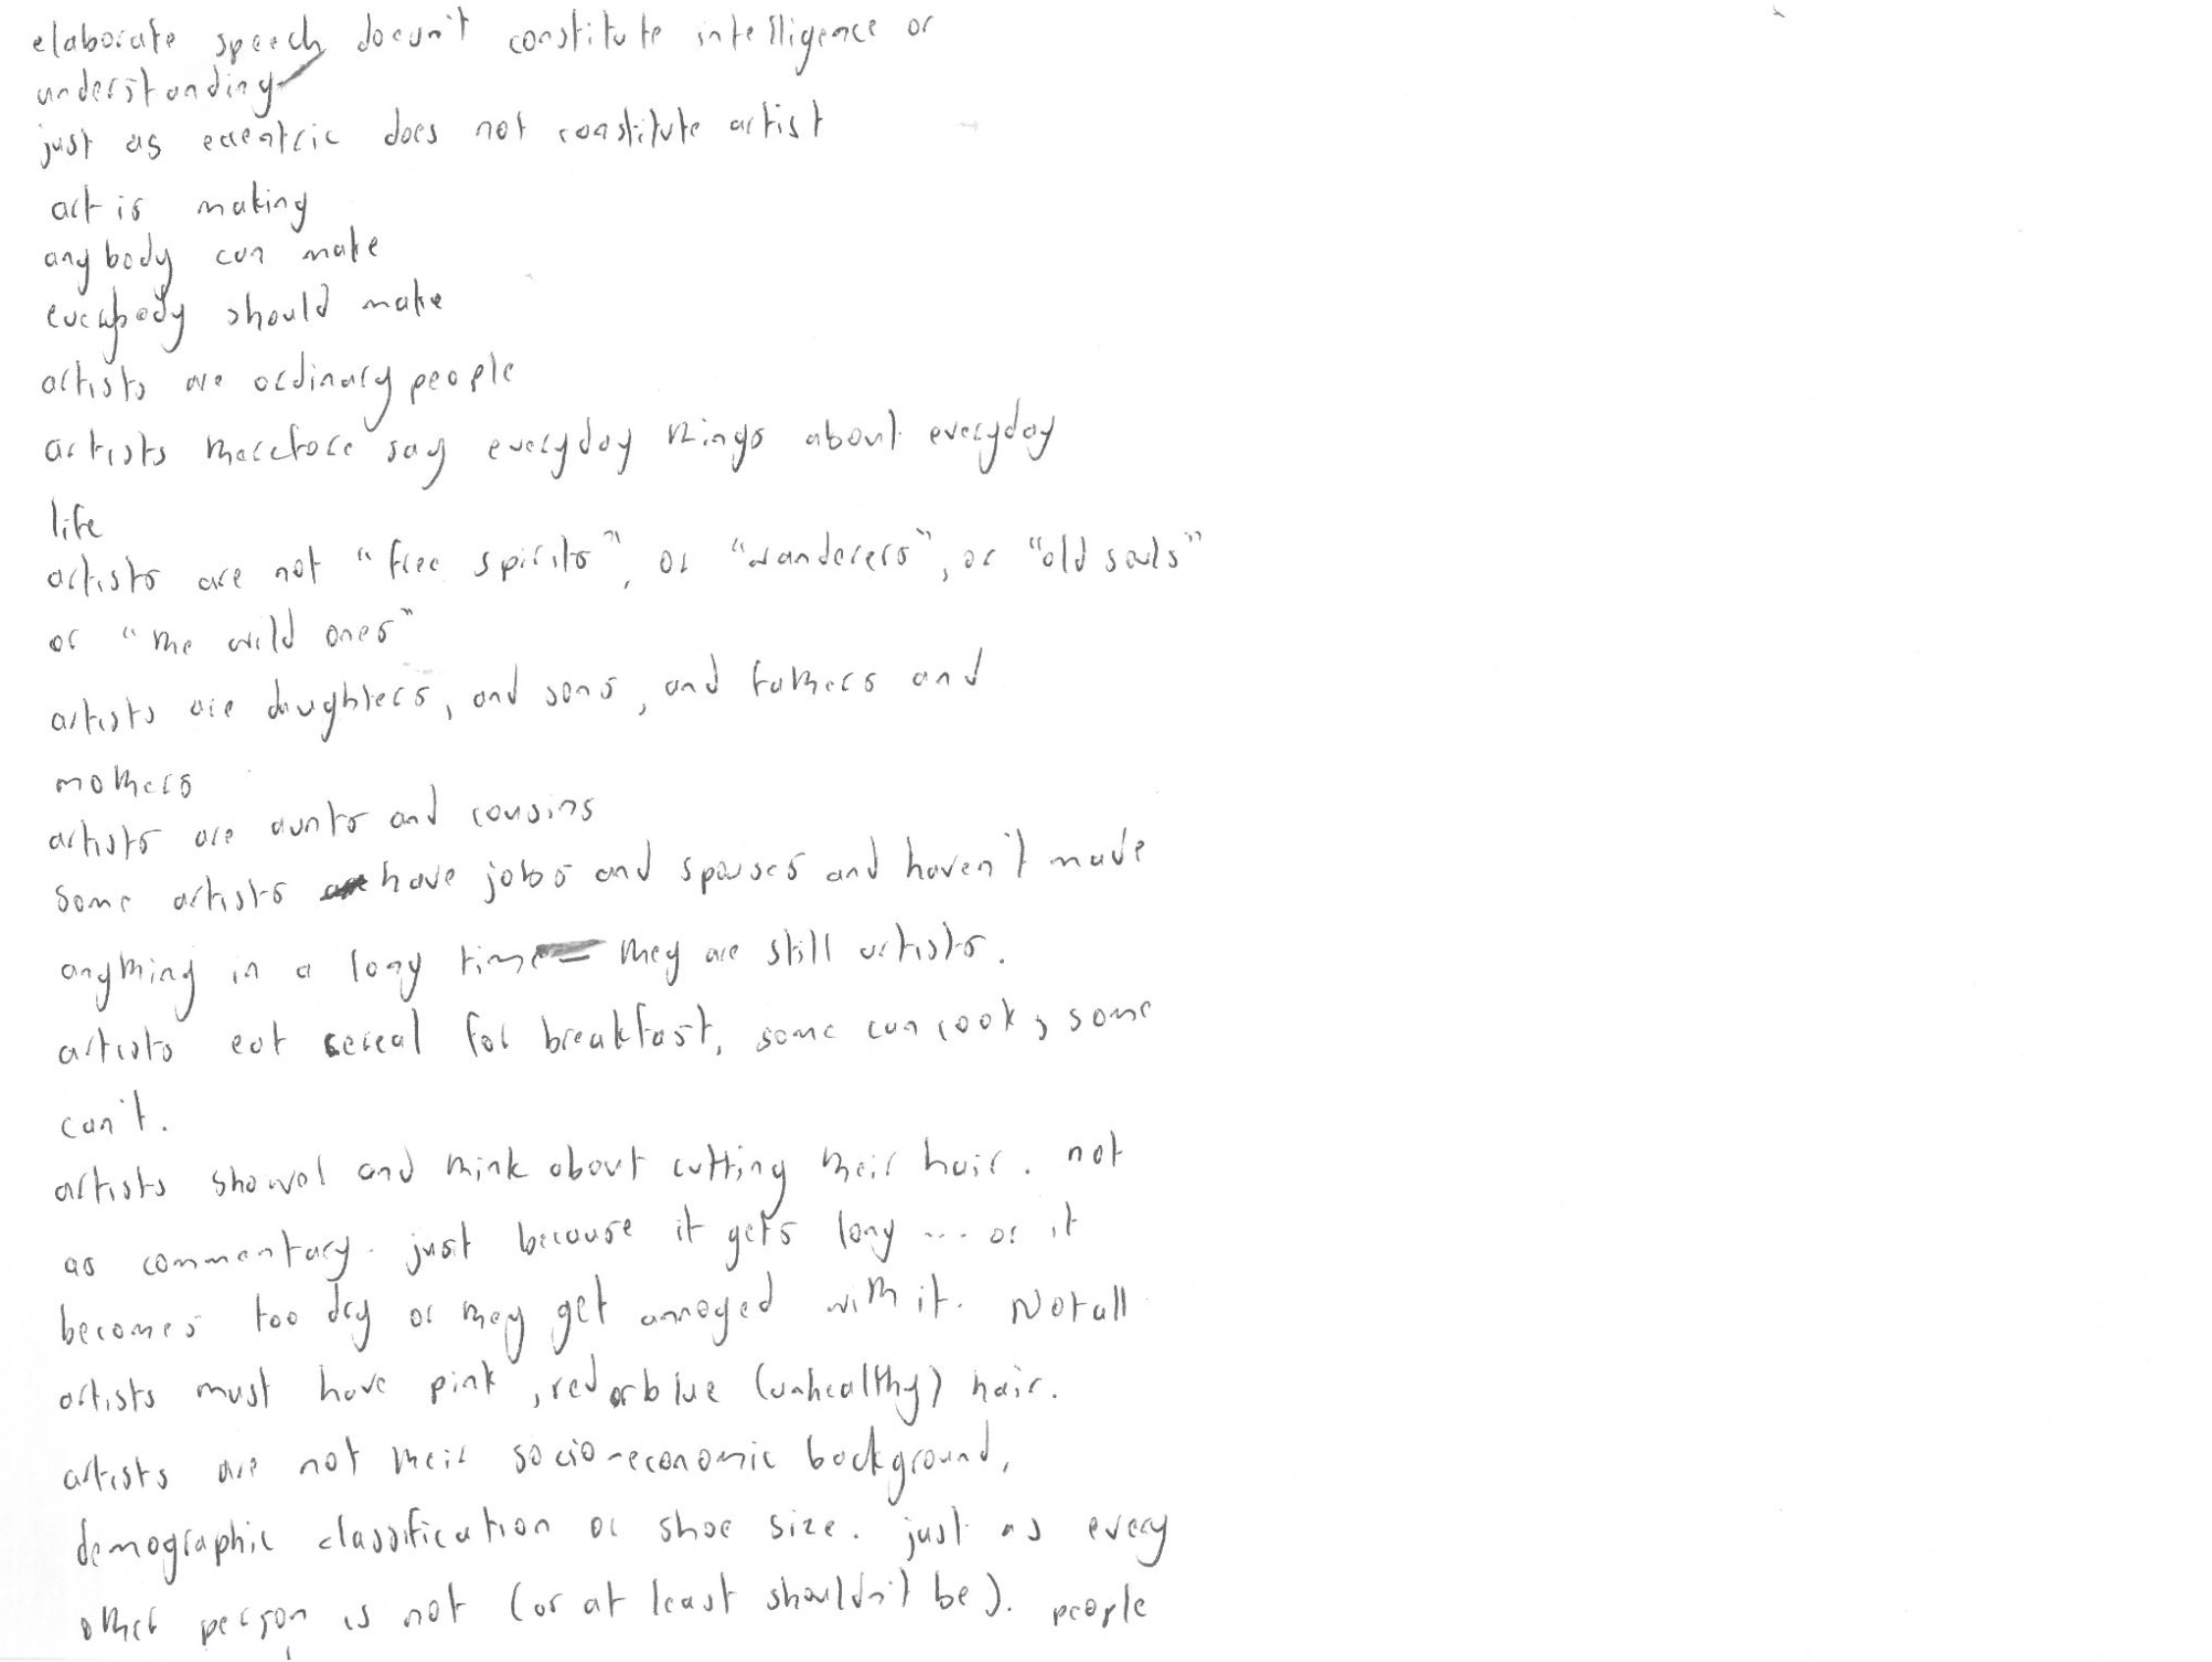 elaborate speech doesn't constitute intelligence or
understanding
just as eccentric does not constitute artist
art is making
anybody can make
everybody should make
artists are ordinary people
artists therefore say everyday things about everyday
life
artists are not "free spirits", or "wanderers", or "old souls"
or "the wild ones"
artists are daughters, and sons, and fathers and
mothers
artists are aunts and cousins
some artists have jobs and spouses and haven't made
anything in a long time they are still artists.
artists eat cereal for breakfast, some can cook, some
can't.
artists shovel and think about cutting their hair. not
as commentary. just because it gets long ... or it
becomes too dry or they get annoyed with it. Not all
artists must have pink, red or blue (unhealthy) hair.
artists are not their socio-economic background,
demographic classification or shoe size. just as every
other person is not (or at least shouldn't be). people